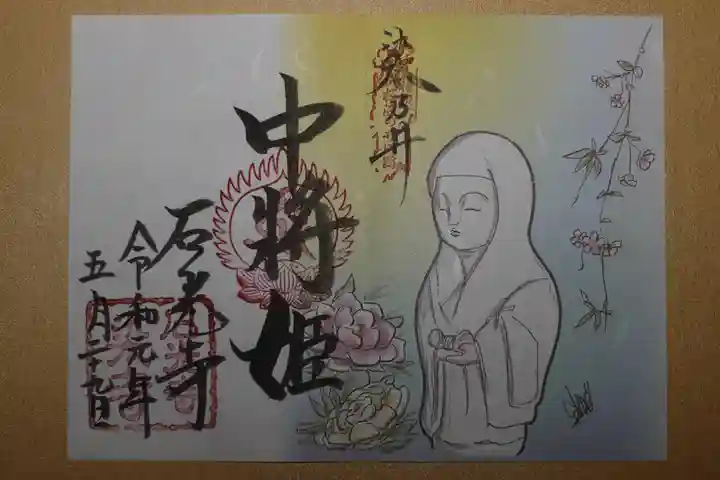 染乃井
中將姫
石光寺
令和元年
五月二十九日